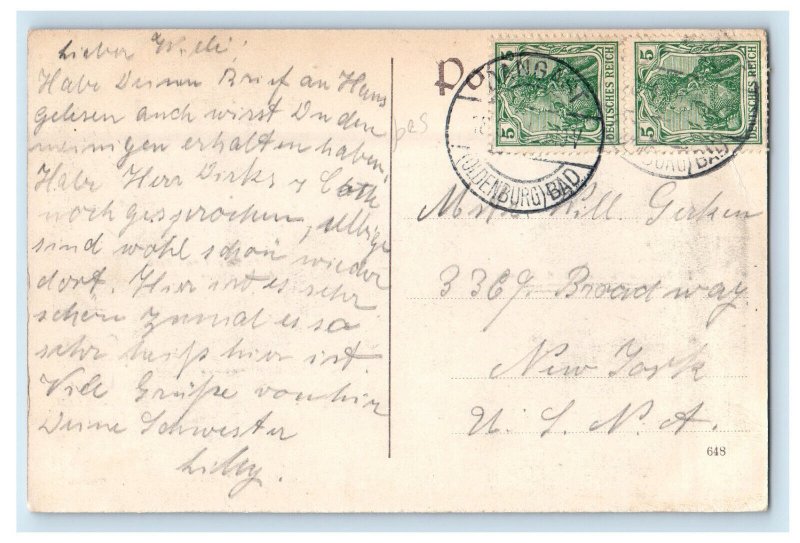 Lieber Willi!
Habe Deinen Brief an Hans
gelesen auch wirst Du den
meinigen erhalten haben.
Habe Herr Dirks
noch gesprochen, selbige
sind wohl schon wieder
dort. Hier ist es sehr
schön zumal es so
sehr heiß hier ist.
Viele Grüße von hier
Deine Schwester
Po
DANGAST
(OLDENBURG) BAD.
5 5 DEUTSCHES REICH
5 5 DEUTSCHES REICH
Will. Gerken
3369. Broadway
New York
U. S. N. A.
648